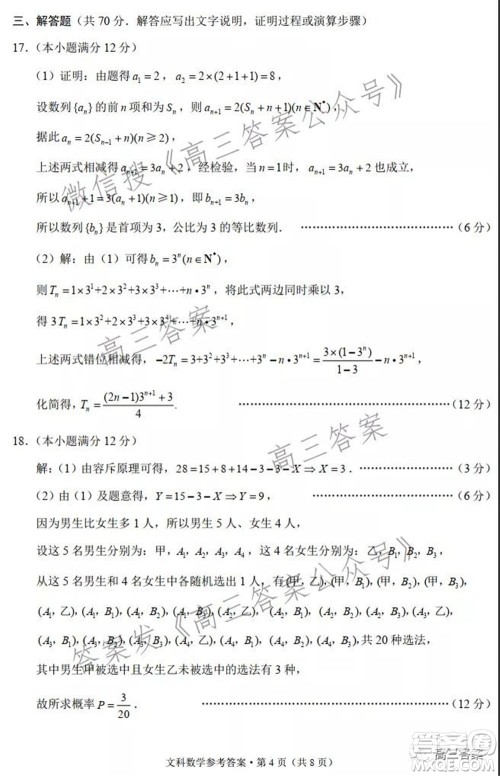 三、解答题（共 70 分．解答应写出文字说明，证明过程或演算步骤）
17.（本小题满分 12 分）
（1）证明：由题得 a₁=2， a₂=2×(2+1+1)=8，
设数列{aₙ}的前 n 项和为 Sₙ，则 aₙ₊₁=2(Sₙ+n+1)(n∈N*)，
据此 aₙ=2(Sₙ₋₁+n)(n≥2)，
上述两式相减得 aₙ₊₁=3aₙ+2，经检验，当 n=1 时，aₙ₊₁=3aₙ+2 也成立，
所以 aₙ₊₁+1=3(aₙ+1)(n≥1)，即 bₙ₊₁=3bₙ，
所以数列{bₙ}是首项为 3，公比为 3 的等比数列． ……………………………（6 分）
（2）解：由（1）可得 bₙ=3ⁿ(n∈N*)，
则Tₙ=1×3¹+2×3²+3×3³+…+n•3ⁿ，将此式两边同时乘以 3，
得 3Tₙ=1×3²+2×3³+3×3⁴+…+n•3ⁿ⁺¹，
上述两式错位相减得，-2Tₙ=3+3²+3³+…+3ⁿ-n•3ⁿ⁺¹=3×(1-3ⁿ)/(1-3)-n•3ⁿ⁺¹，
化简得，Tₙ=((2n-1)3ⁿ⁺¹+3)/4． ……………………………（12 分）
18.（本小题满分 12 分）
解：（1）由容斥原理可得，28=15+8+14-3-3-X⇒X=3． ……………（3 分）
（2）由（1）及题意得，Y=15-3-X⇒Y=9， ……………………………（6 分）
因为男生比女生多 1 人，所以男生 5 人，女生 4 人，
设这 5 名男生分别为：甲，A₁，A₂，A₃，A₄，这 4 名女生分别为：乙，B₁，B₂，B₃，
从这 5 名男生和 4 名女生中各随机选出 1 人，有(甲，乙)，(甲，B₁)，(甲，B₂)，(甲，B₃)，
(A₁，乙)，(A₁，B₁)，(A₁，B₂)，(A₁，B₃)，(A₂，乙)，(A₂，B₁)，(A₂，B₂)，(A₂，B₃)，(A₃，乙)，
(A₃，B₁)，(A₃，B₂)，(A₃，B₃)，(A₄，乙)，(A₄，B₁)，(A₄，B₂)，(A₄，B₃)，共 20 种选法，
其中男生甲被选中且女生乙未被选中的选法有 3 种，
故所求概率 P=3/20． ……………………………（12 分）
文科数学参考答案・第 4 页（共 8 页）
微信搜《高三答案公众号》
高三答案
高三答案
答案发《高三答案公众号》
高三答案